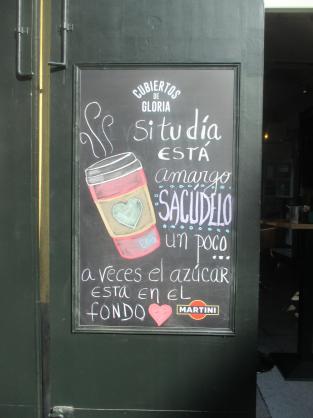 CUBIERTOS
DE
GLORIA
si tu día
ESTÁ
amargo
SACÚDELO
un poco...
a veces el azúcar
ESTA EN EL
FONDO
MARTINI